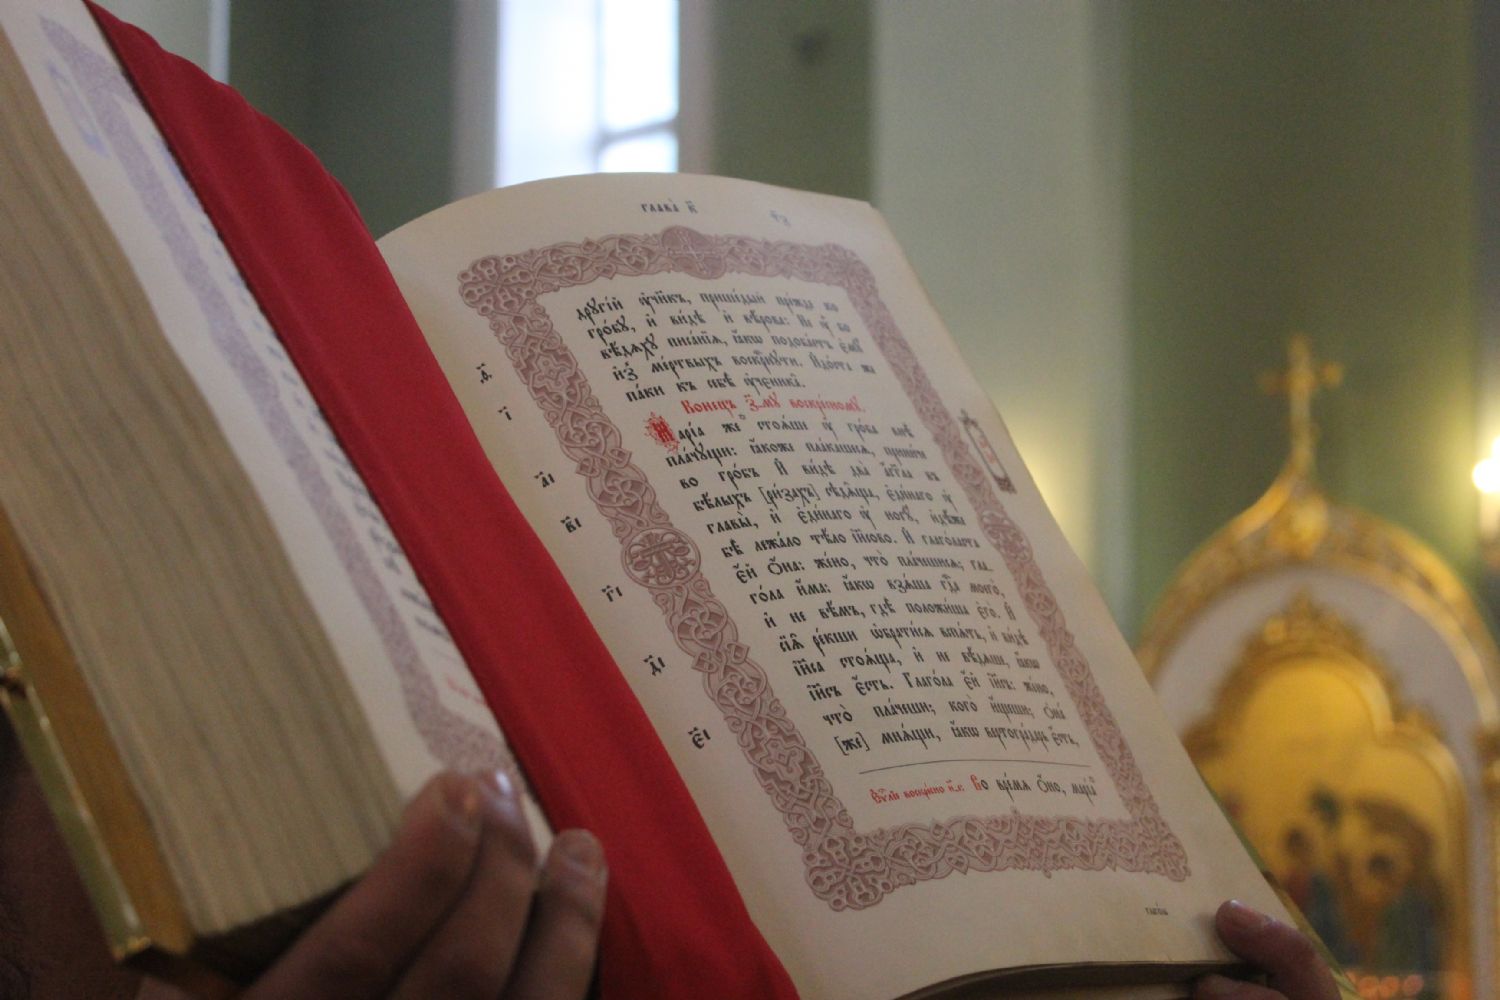 глава̀ к҃
дрꙋгі́й ᲂу҆чн҃къ, прише́дый пре́жде ко
гро́бꙋ, и҆ ви́дѣ и҆ вѣ́рова: Не ᲂу҆̀ бо
вѣ́дѧхꙋ писа́нїѧ, ꙗ҆́кѡ подоба́етъ є҆мꙋ̀
и҆з̾ ме́ртвыхъ воскрⷭ҇нꙋти. И҆до́ста же
па́ки къ себѣ̀ ᲂу҆ченика̑.
Коне́цъ з҃-мꙋ воскрⷭ҇номꙋ.
Марі́а же стоѧ́ше ᲂу҆ гро́ба внѣ̀
пла́чꙋщи: ꙗ҆́коже пла́кашесѧ, прини́че
во гро́бъ И҆ ви́дѣ два̀ а҆́гг҃ла въ
бѣ́лыхъ [ри́захъ] сѣдѧ̑ща, є҆ди́наго ᲂу҆
главы̀, и҆ є҆ди́наго ᲂу҆ ногꙋ̀, и҆дѣ́же
бѣ̀ лежа́ло тѣ́ло і҆и҃сово. И҆ глаго́ласта
є҆́й ѻ҆́на: же́но, что̀ пла́чешисѧ; гла-
го́ла и҆́ма: ꙗ҆́кѡ взѧ́ша гд҇а моего̀,
и҆ не вѣ́мъ, гдѣ̀ положи́ша є҆го̀. И҆
сїѧ̑ ре́кши ѡ҆брати́сѧ вспѧ́ть, и҆ ви́дѣ
і҆и҃са стоѧ́ща, и҆ не вѣ́дѧше, ꙗ҆́кѡ
і҆и҃съ є҆́сть. Глаго́ла є҆́й і҆и҃съ: же́но,
что̀ пла́чеши; кого̀ и҆́щеши; Ѻ҆на́
[же] мнѧ́щи, ꙗ҆́кѡ вертогра́дарь є҆́сть,
Во вре́мѧ ѻ҆́но, марі́а
глаго́ла
ѳ҃
і҃
а҃і
в҃і
г҃і
д҃і
є҃і